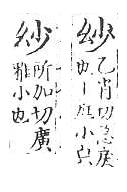 紗乙肖切急戾
也一曰小皃
紗所加切廣
雅小也